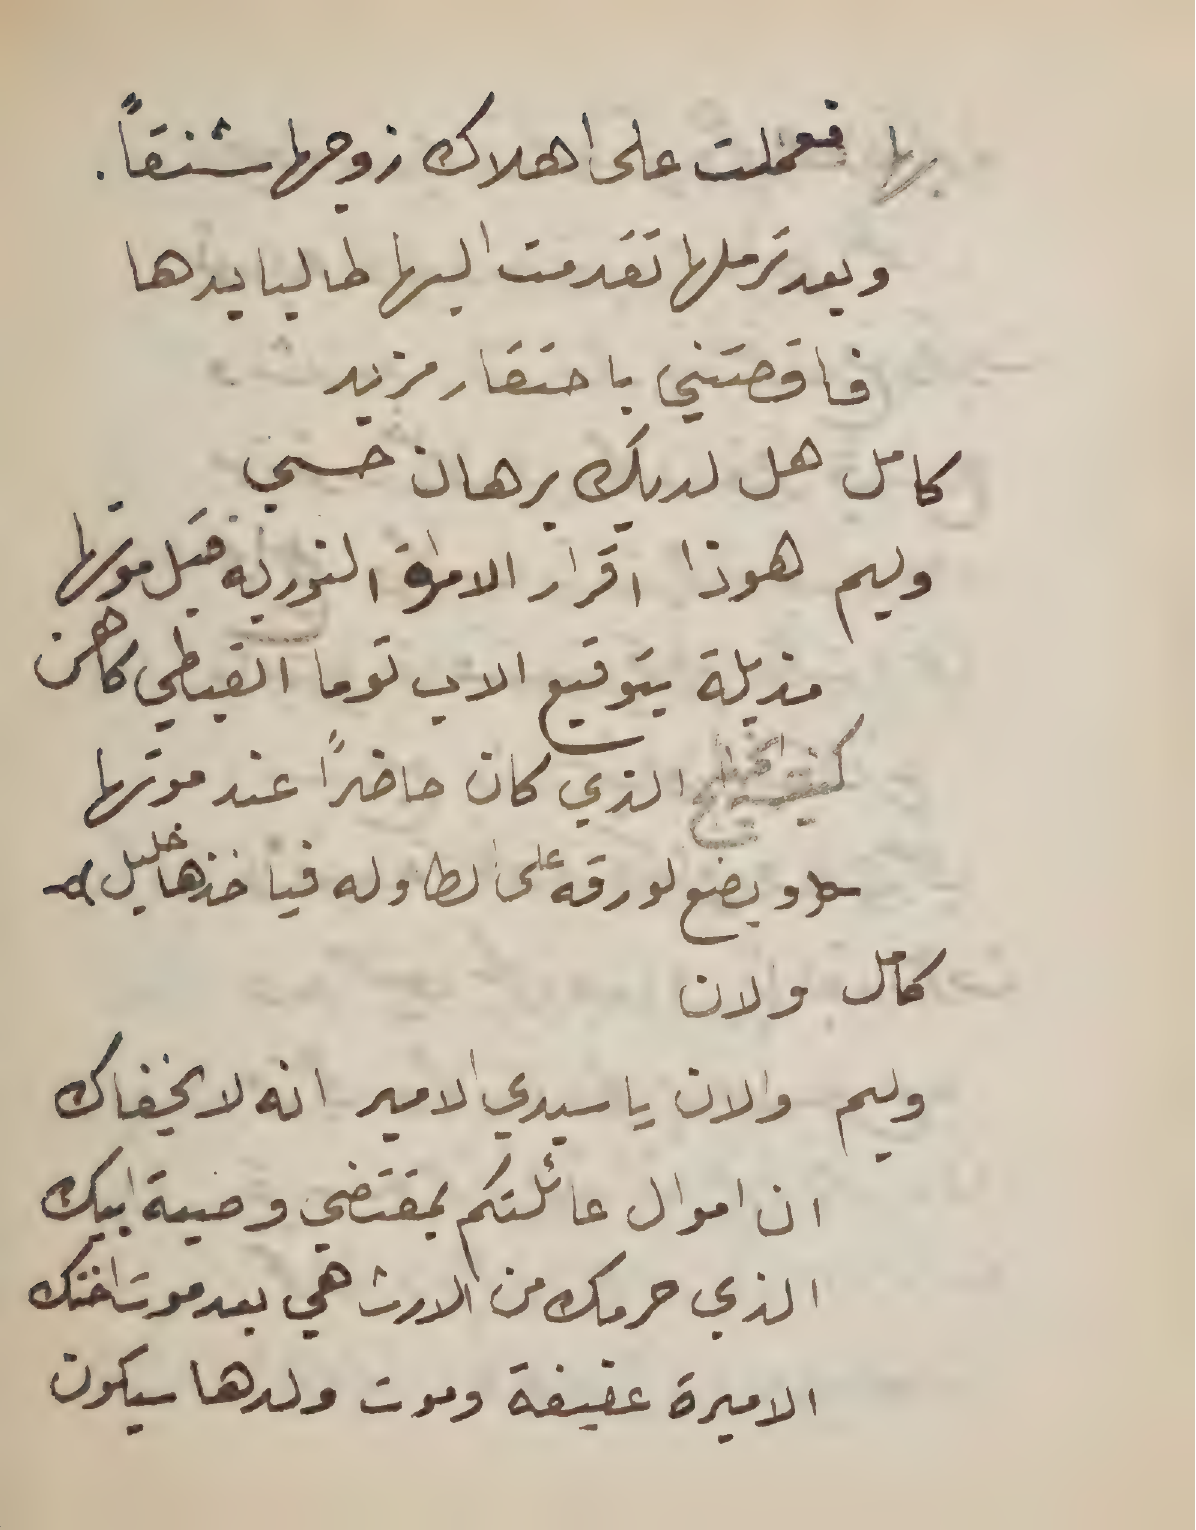 بها فعملت على اهلاك زوجها شنقاً.
وبعد ترملها تقدمت اليها طالبا يدها
فاقصتني باحتقار مزيد
كامل هل لديك برهان حسي
وليم هوذا اقرار الامراة النورية قبل موتها
مذيلة بتوقيع الاب توما القبطي كاهن
الذي كان حاضراً عند موتها
ويضع لورقه على لطاوله فياخذها خليل
كامل ولان
وليم والان يا سيدي الامير انه لا يخفاك
ان اموال عائلتكم بمقتضي وصية ابيك
الذي حرمك من الارث هي بعد موت اختك
الاميرة عفيفة وموت ولدها سيكون